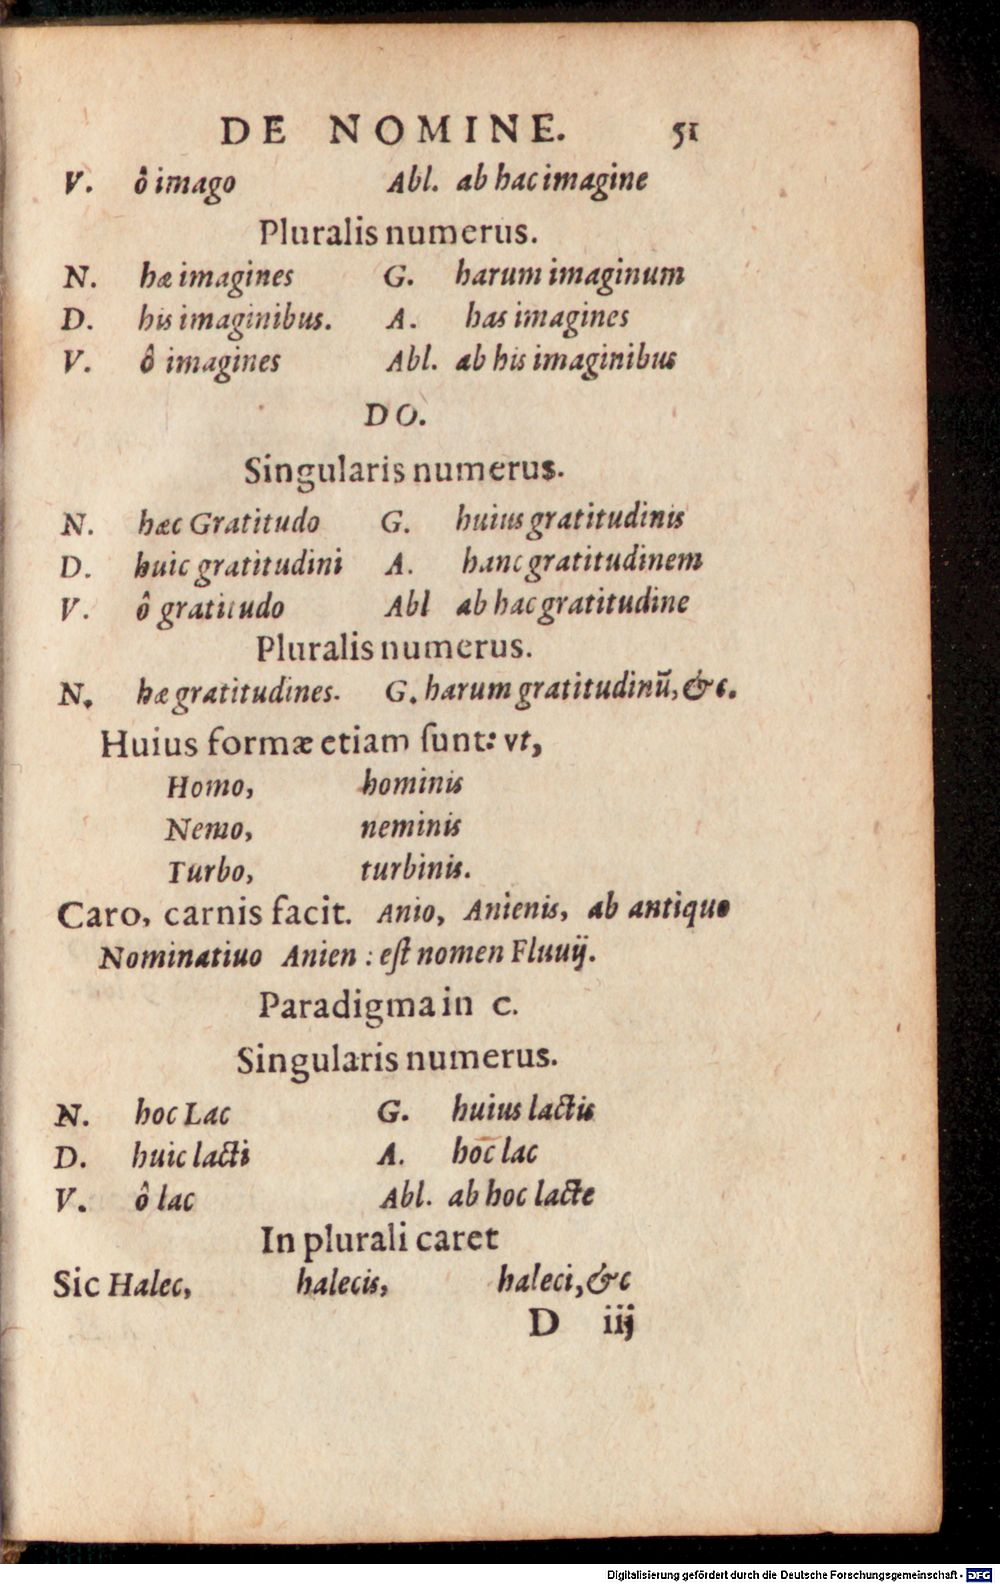 DE NOMINE. 51
V. ô imago Abl. ab hac imagine
Pluralis numerus.
N. hæ imagines G. harum imaginum
D. his imaginibus. A. has imagines
V. ô imagines Abl. ab his imaginibus
DO.
Singularis numerus.
N. hæc Gratitudo G. huius gratitudinis
D. huic gratitudini A. hanc gratitudinem
V. ô gratitudo Abl ab hac gratitudine
Pluralis numerus.
N. hæ gratitudines. G. harum gratitudinū, &c.
Huius formæ etiam ſunt: vt,
Homo, hominis
Nemo, neminis
Turbo, turbinis.
Caro, carnis facit. Anio, Anienis, ab antiquo
Nominatiuo Anien : eſt nomen Fluuij.
Paradigma in c.
Singularis numerus.
N. hoc Lac G. huius lactis
D. huic lacti A. hoc lac
V. ô lac Abl. ab hoc lacte
In plurali caret
Sic Halec, halecis, haleci, &c
D iij
Digitalisierung gefördert durch die Deutsche Forschungsgemeinschaft - DFG